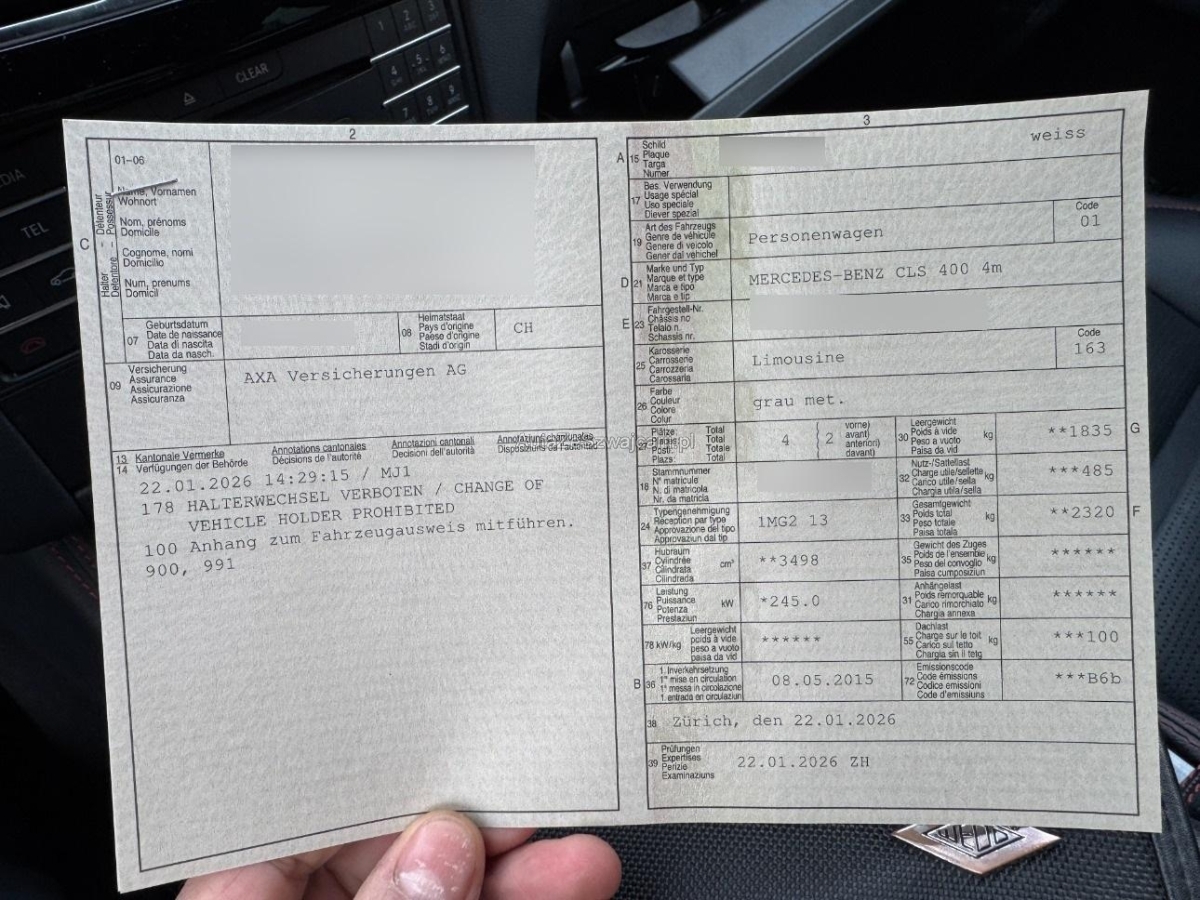 CLEAR
1
2
3
4
5
6
7
8
9
MEDIA
TEL
2
C
Halter – Détenteur
Detentore – Possessur
01–06
Name, Vornamen
Wohnort
Nom, prénoms
Domicile
Cognome, nomi
Domicilio
Num, prenums
Domicil
07
Geburtsdatum
Date de naissance
Data di nascita
Data da nasch.
08
Heimatstaat
Pays d'origine
Paese d'origine
Stadi d'origin
CH
09
Versicherung
Assurance
Assicurazione
Assicuranza
AXA Versicherungen AG
13 Kantonale Vermerke Annotations cantonales Annotazioni cantonali Annotaziuns chantunalas
14 Verfügungen der Behörde Décisions de l'autorité Decisioni dell'autorità Disposiziuns da l'autoritad
22.01.2026 14:29:15 / MJ1
178 HALTERWECHSEL VERBOTEN / CHANGE OF
VEHICLE HOLDER PROHIBITED
100 Anhang zum Fahrzeugausweis mitführen.
900, 991
3
A 15
Schild
Plaque
Targa
Numer
weiss
17
Bes. Verwendung
Usage spécial
Uso speciale
Diever spezial
19
Art des Fahrzeugs
Genre de véhicule
Genere di veicolo
Gener dal vehichel
Personenwagen
Code
01
D 21
Marke und Typ
Marque et type
Marca e tipo
Marca e tip
MERCEDES-BENZ CLS 400 4m
E 23
Fahrgestell-Nr.
Châssis no
Telaio n.
Schassis nr.
25
Karosserie
Carrosserie
Carrozzeria
Carossaria
Limousine
Code
163
26
Farbe
Couleur
Colore
Colur
grau met.
27
Plätze Total
Places Total
Posti Totale
Plazs Total
4
2
vorne)
avant)
anteriori)
davant)
30
Leergewicht
Poids à vide
Peso a vuoto
Paisa da vid
kg
**1835
G
18
Stammnummer
N° matricule
N. di matricola
Nr. da matricla
32
Nutz-/Sattellast
Charge utile/sellette
Carico utile/sella
Chargia utila/sella
kg
***485
24
Typengenehmigung
Réception par type
Approvazione del tipo
Approvaziun dal tip
1MG2 13
33
Gesamtgewicht
Poids total
Peso totale
Paisa totala
kg
**2320
F
37
Hubraum
Cylindrée
Cilindrata
Cilindrada
cm³
**3498
35
Gewicht des Zuges
Poids de l'ensemble
Peso del convoglio
Paisa cumposiziun
kg
******
76
Leistung
Puissance
Potenza
Prestaziun
kW
*245.0
31
Anhängelast
Poids remorquable
Carico rimorchiato
Chargia annexa
kg
******
78 kW/kg
Leergewicht
poids à vide
peso a vuoto
paisa da vid
******
55
Dachlast
Charge sur le toit
Carico sul tetto
Chargia sin il tetg
kg
***100
B 36
1. Inverkehrsetzung
1re mise en circulation
1a messa in circolazione
1. entrada en circulaziun
08.05.2015
72
Emissionscode
Code émissions
Codice emissioni
Code d'emissiuns
***B6b
38
Zürich, den 22.01.2026
39
Prüfungen
Expertises
Perizie
Examinaziuns
22.01.2026 ZH